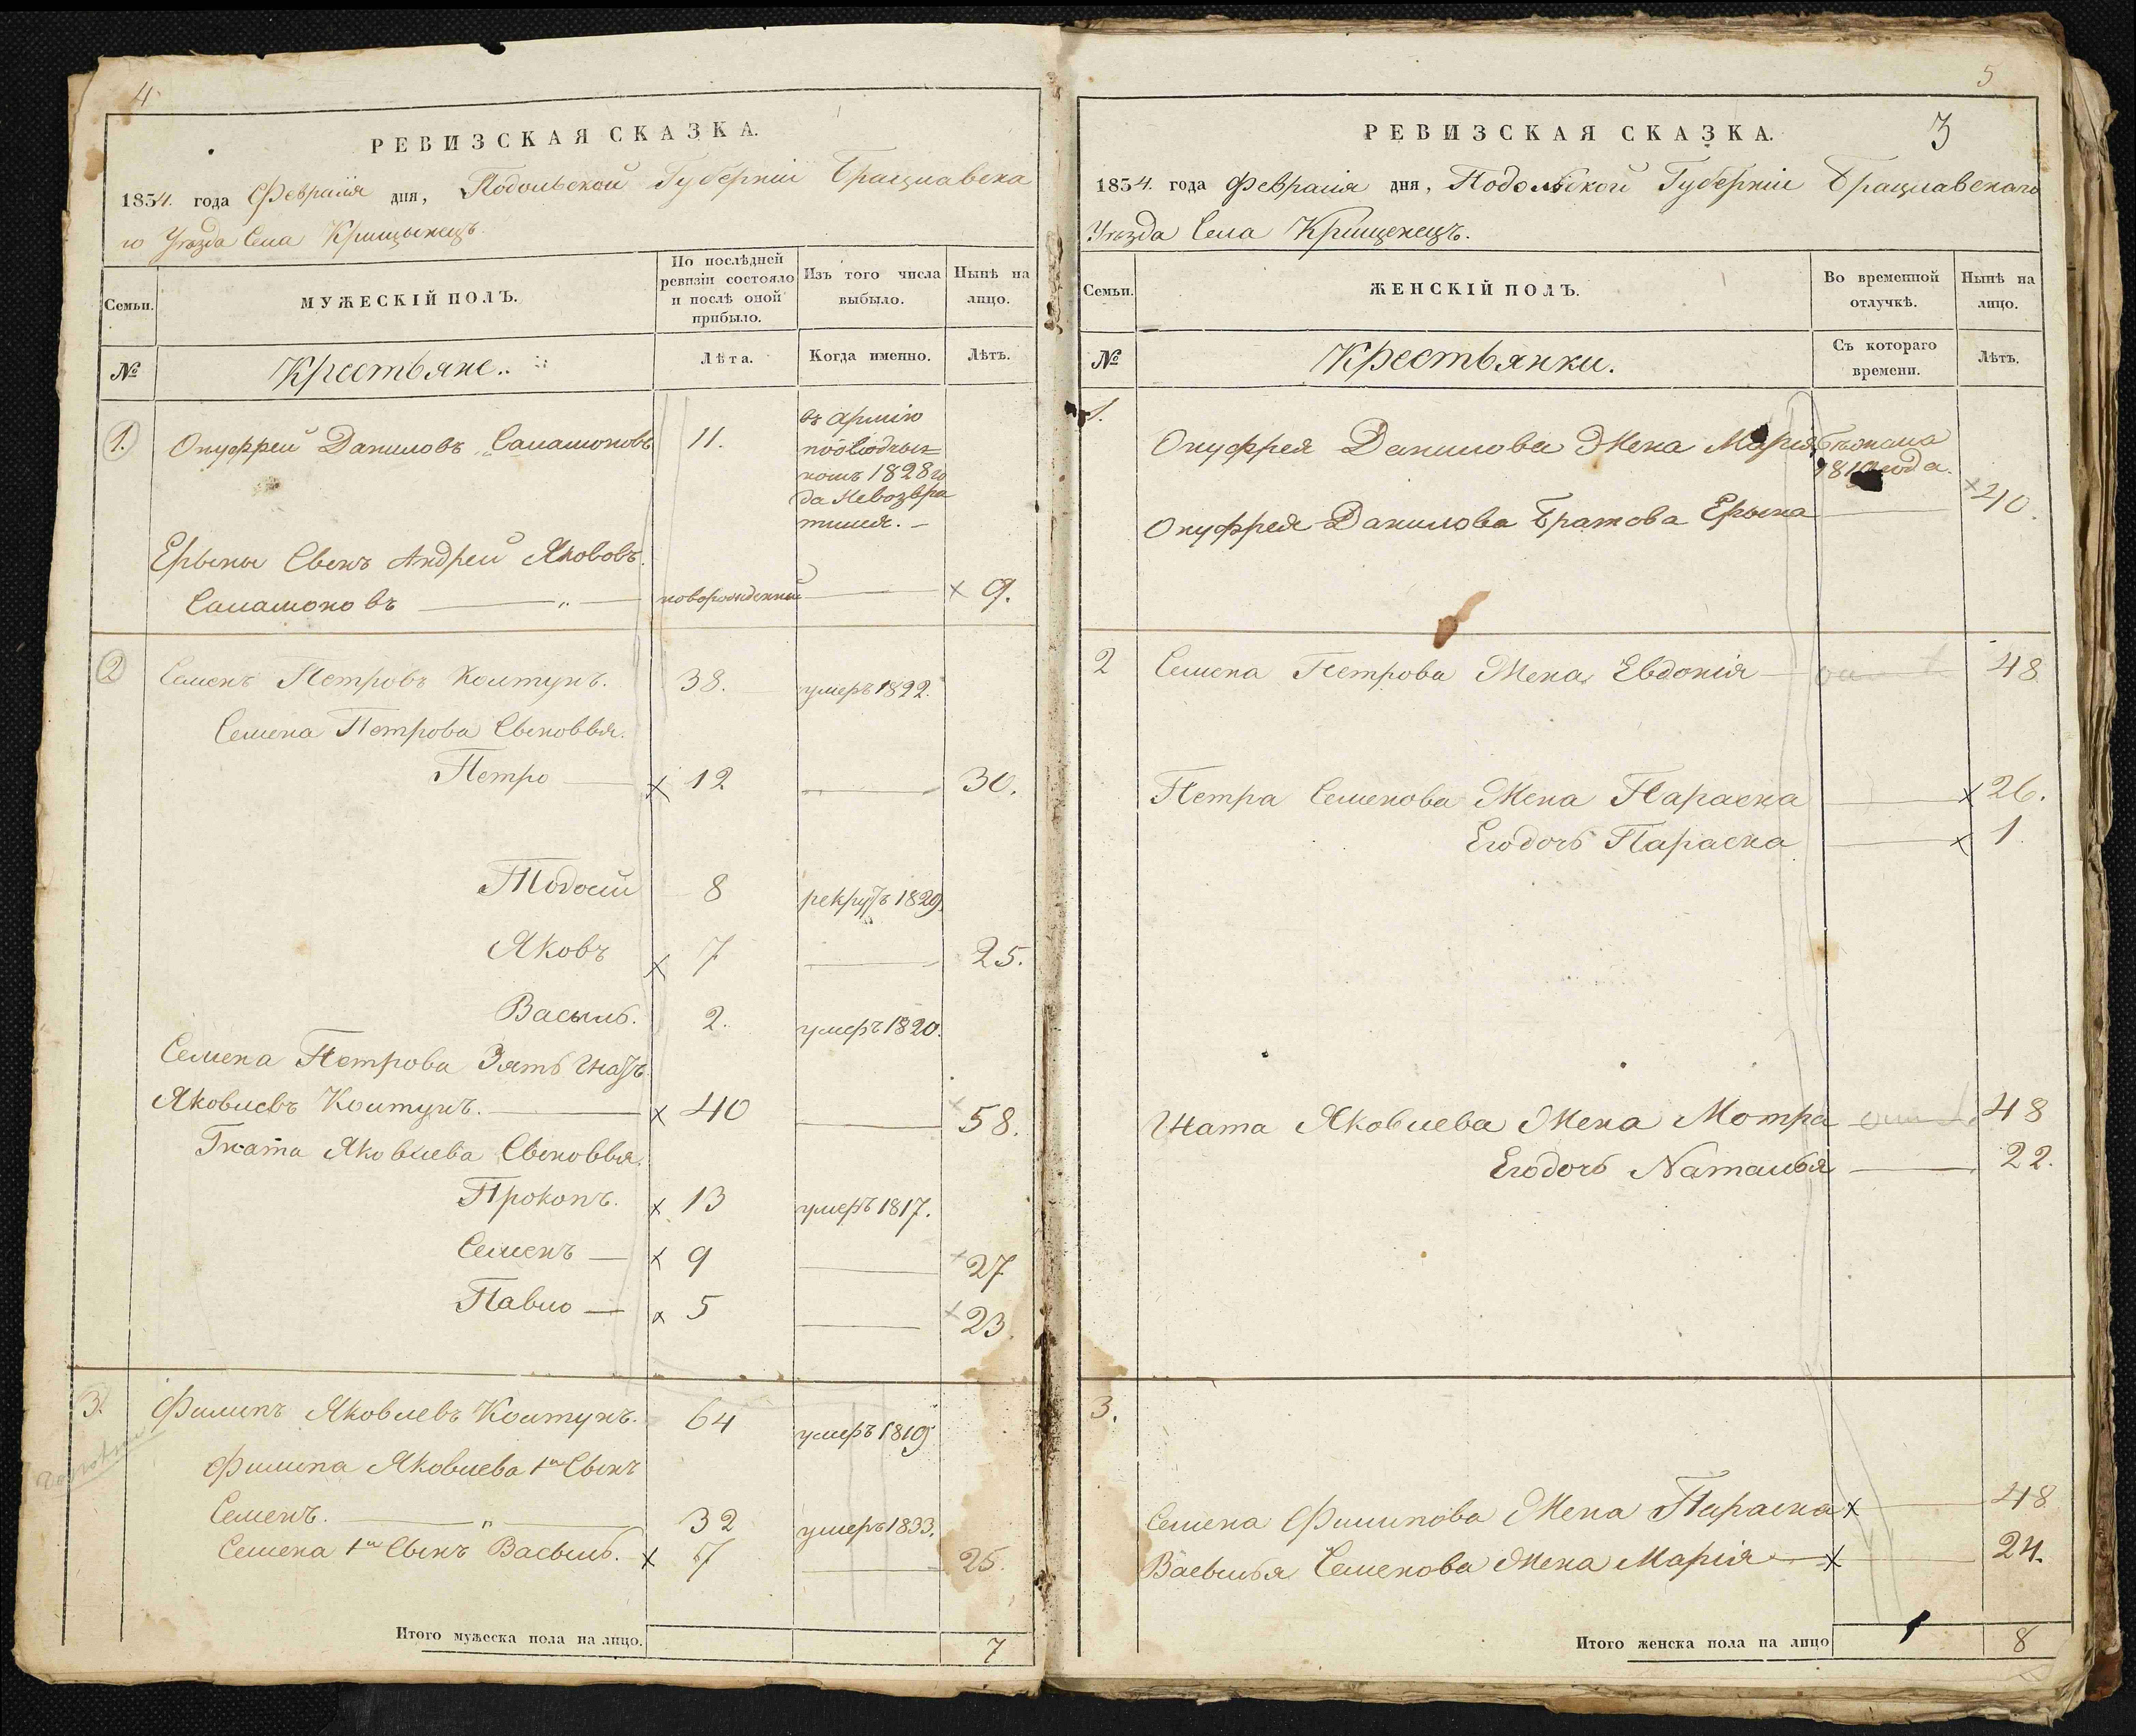 4
РЕВИЗСКАЯ СКАЗКА.
1834. года Февраля дня, Подольской Губерніи Брацлавска
го Уѣзда Села Крищынецъ.
Семьи.
МУЖЕСКІЙ ПОЛЪ.
По послѣдней ревизіи состояло и послѣ оной прибыло.
Изъ того числа выбыло.
Нынѣ на лицо.
№
Крестьяне.
Лѣта.
Когда именно.
Лѣтъ.
1. Онуфрей Даниловъ Саламоновъ 11.
въ армію
1828 го
да невозвра
тился.
Ерыны Сынъ Андрей Якововъ
Саламоновъ новорожденный 9.
2 Семенъ Петровъ Колтунъ. 38. умеръ 1822.
Семена Петрова Сыновья.
Петро 12 30.
Тодосій 8 рекрутъ 1829.
Яковъ 7 25.
Василь. 2. умеръ 1820.
Семена Петрова Зять
Яковлевъ Колтунъ. 40 58.
Яковлева Сыновья.
Прокопъ. 13 умеръ 1817.
Семенъ 9 27
Павло 5 23.
3. Филипъ Яковлевъ Колтунъ. 64 умеръ 1819
Филипа Яковлева 1й Сынъ
Семенъ. 32 умеръ 1833.
Семена 1й Сынъ Василь. 7 25.
Итого мужеска пола на лицо. 7
5
РЕВИЗСКАЯ СКАЗКА. 3
1834. года Февраля дня, Подольской Губерніи Брацлавскаго
Уѣзда Села Крищенецъ.
Семьи.
ЖЕНСКІЙ ПОЛЪ.
Во временной отлучкѣ.
Нынѣ на лицо.
№
Крестьянки.
Съ котораго времени.
Лѣтъ.
1.
Онуфрея Данилова Жена Марія бѣжала
года.
Онуфрея Данилова Братова Ерына 40.
2 Семена Петрова Жена Евдокія 48
Петра Семенова Жена Параска 26.
Его дочь Параска 1.
Яковлева Жена Мотра 48
Его дочь Наталья 22.
3.
Семена Филипова Жена Параска 48
Васылья Семенова Жена Марія 24.
Итого женска пола на лицо 8